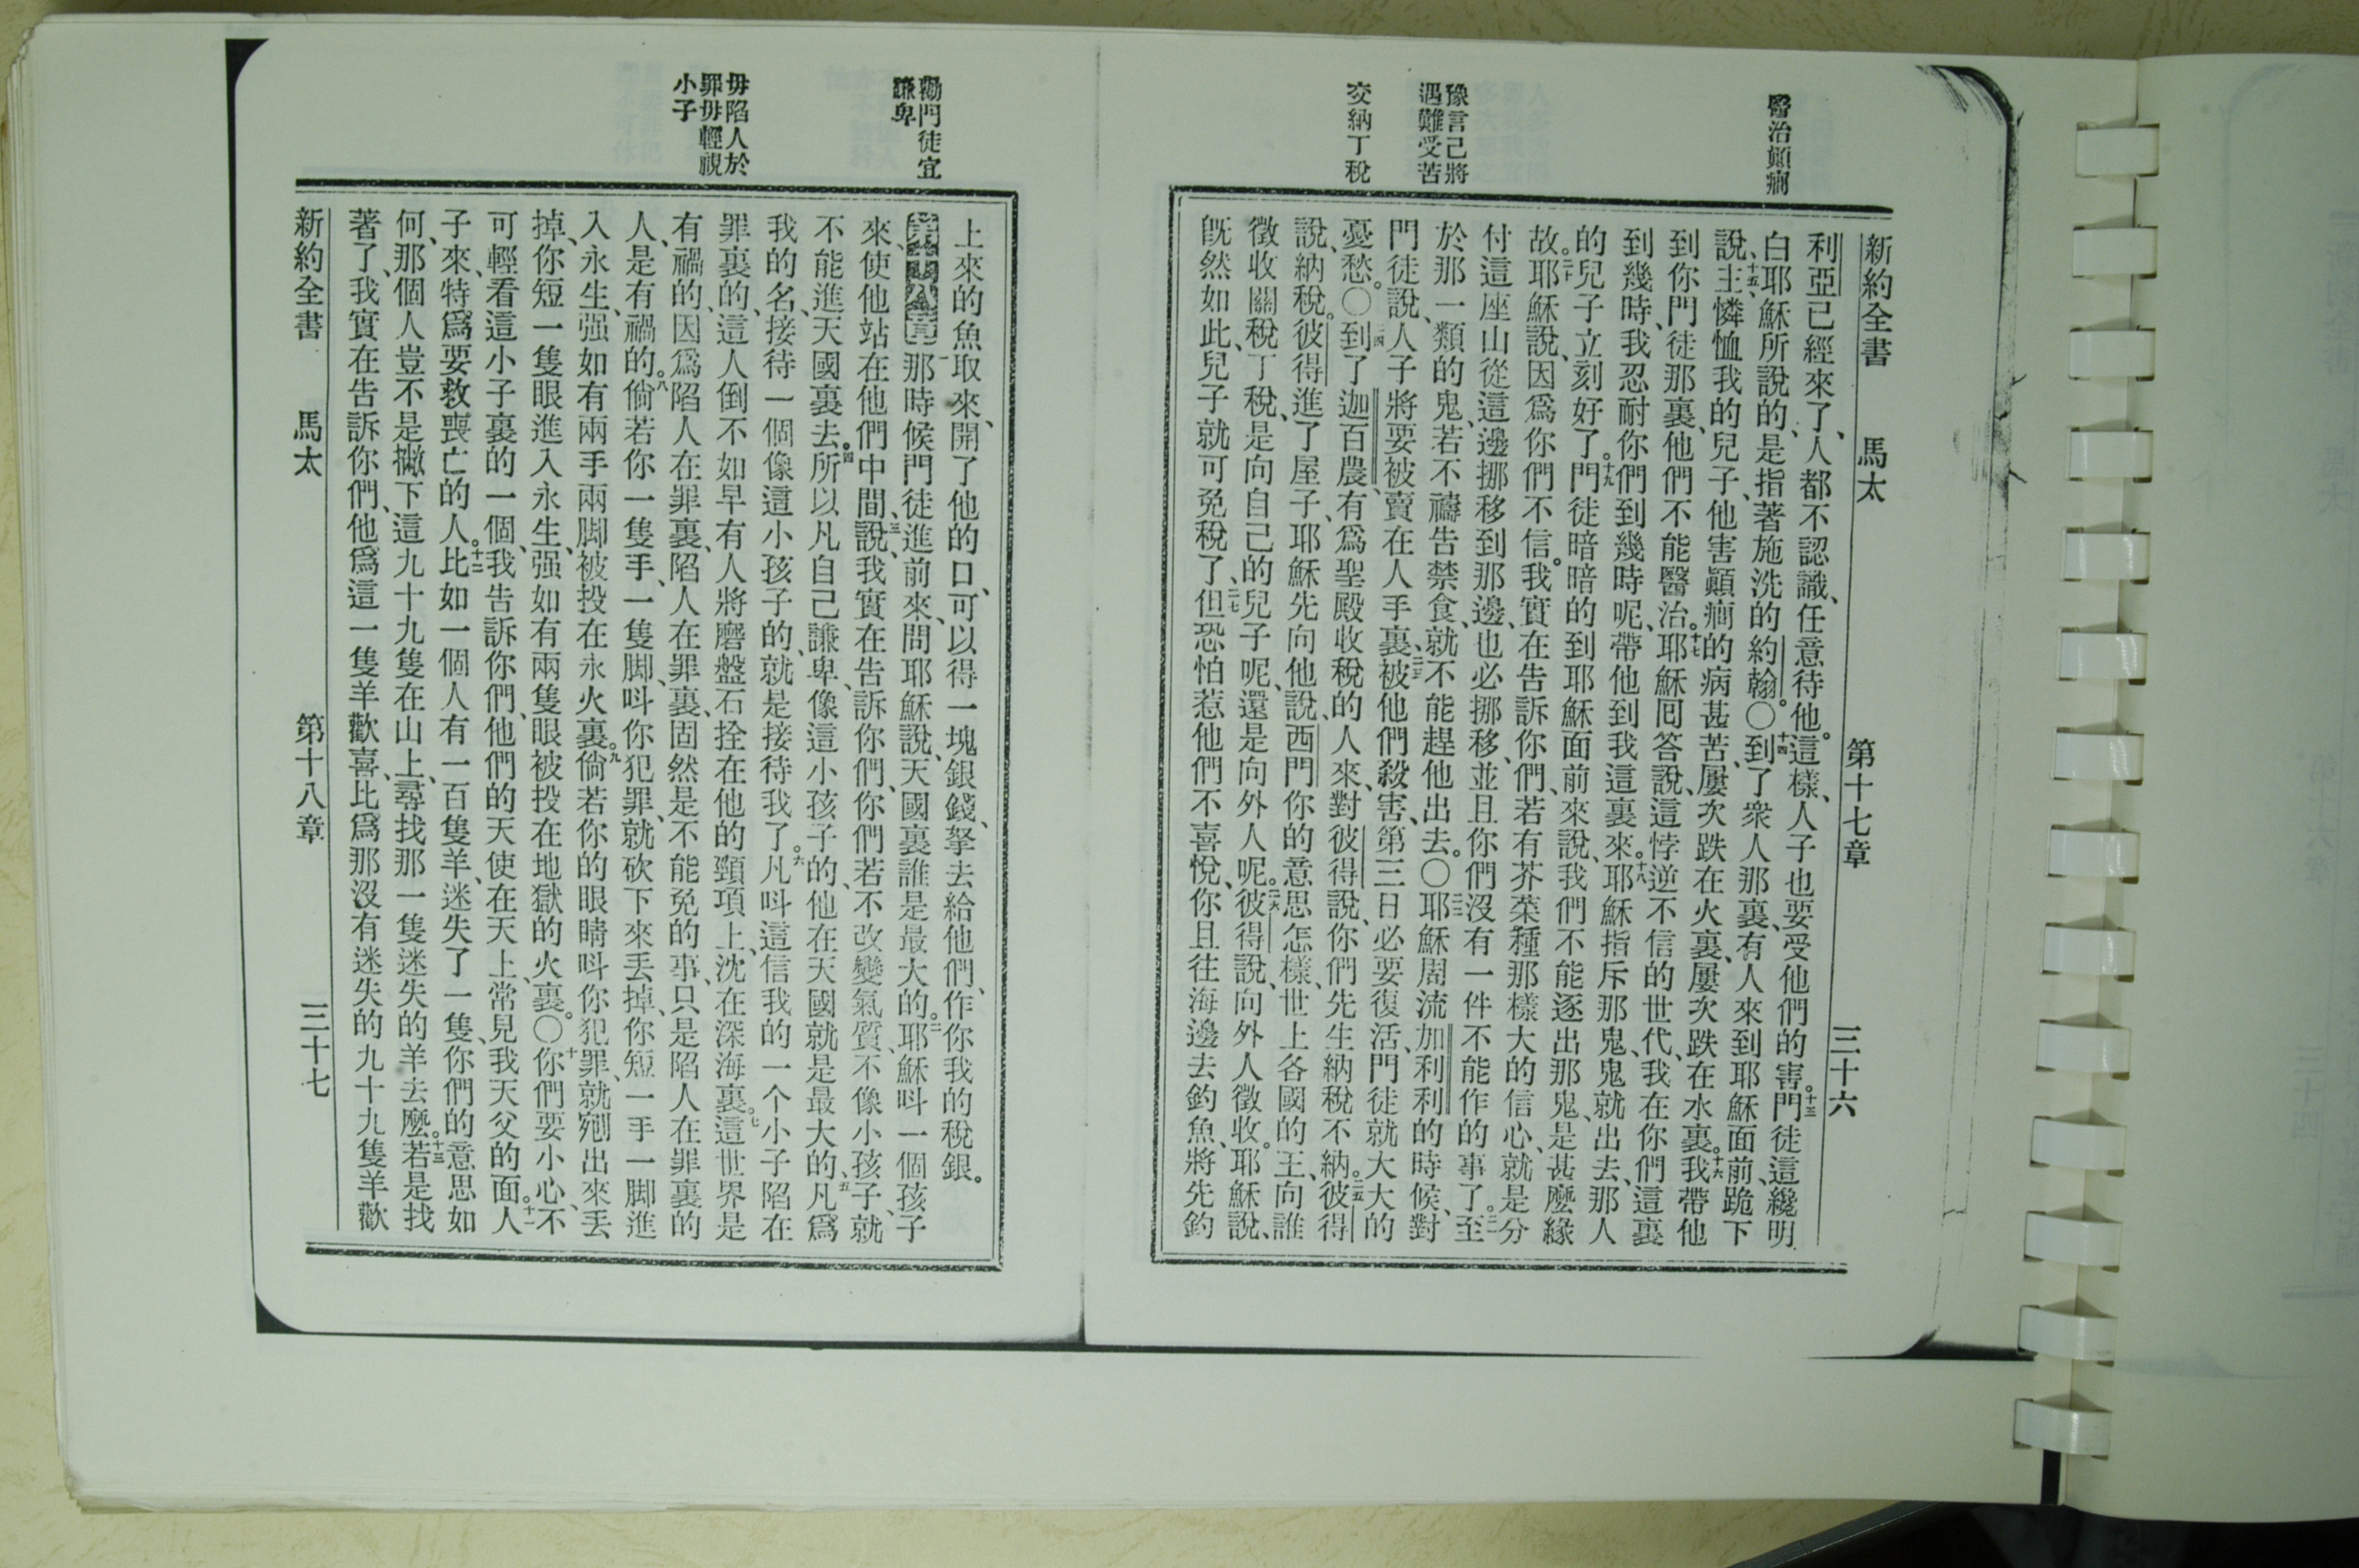 新約全書 馬太 第十七章 三十六
醫治顛癎
豫言己將
遇難受苦
交納丁稅
利亞已經來了、人都不認識、任意待他。這樣、人子也要受他們的害。十三門徒這纔明
白耶穌所說的、是指著施洗的約翰。〇十四到了衆人那裏、有人來到耶穌面前、跪下
說、十五主憐恤我的兒子、他害顛癎的病甚苦、屢次跌在火裏、屢次跌在水裏。十六我帶他
到你門徒那裏、他們不能醫治。十七耶穌囘答說、這悖逆不信的世代、我在你們這裏
到幾時、我忍耐你們到幾時呢、帶他到我這裏來。十八耶穌指斥那鬼、鬼就出去、那人
的兒子立刻好了。十九門徒暗暗的到耶穌面前來說、我們不能逐出那鬼、是甚麼緣
故。二十耶穌說、因爲你們不信。我實在告訴你們、若有芥菜種那樣大的信心、就是分
付這座山從這邊挪移到那邊、也必挪移、並且你們沒有一件不能作的事了。二一至
於那一類的鬼、若不禱告禁食、就不能趕他出去。〇二二耶穌周流加利利的時候、對
門徒說、人子將要被賣在人手裏、二三被他們殺害、第三日必要復活、門徒就大大的
憂愁。〇二四到了迦百農、有爲聖殿收稅的人來、對彼得說、你們先生納稅不納。二五彼得
說、納稅。彼得進了屋子、耶穌先向他說、西門你的意思怎樣、世上各國的王、向誰
徵收關稅丁稅、是向自己的兒子呢、還是向外人呢。二六彼得說、向外人徵收。耶穌說、
旣然如此、兒子就可免稅了、二七但恐怕惹他們不喜悅、你且往海邊去釣魚、將先釣
勸門徒宜
謙卑
毋陷人於
罪毋輕視
小子
上來的魚取來、開了他的口、可以得一塊銀錢、拏去給他們、作你我的稅銀。
第十八章 一那時候門徒進前來、問耶穌說、天國裏誰是最大的。二耶穌呌一個孩子
來、使他站在他們中間、三說、我實在告訴你們、你們若不改變氣質、不像小孩子、就
不能進天國裏去。四所以凡自己謙卑、像這小孩子的、他在天國就是最大的、五凡爲
我的名、接待一個像這小孩子的、就是接待我了。六凡呌這信我的一个小子陷在
罪裏的、這人倒不如早有人將磨盤石拴在他的頸項上、沈在深海裏。七這世界是
有禍的、因爲陷人在罪裏、陷人在罪裏、固然是不能免的事、只是陷人在罪裏的
人、是有禍的。八倘若你一隻手、一隻脚、呌你犯罪、就砍下來丟掉、你短一手一脚進
入永生、强如有兩手兩脚被投在永火裏。九倘若你的眼睛呌你犯罪、就剜出來丟
掉、你短一隻眼進入永生、强如有兩隻眼被投在地獄的火裏。〇十你們要小心、不
可輕看這小子裏的一個、我告訴你們、他們的天使在天上、常見我天父的面。十一人
子來、特爲要救喪亡的人。十二比如一個人有一百隻羊、迷失了一隻、你們的意思如
何、那個人豈不是撇下這九十九隻在山上、尋找那一隻迷失的羊去麼。十三若是找
著了、我實在告訴你們、他爲這一隻羊歡喜、比爲那沒有迷失的九十九隻羊歡
新約全書 馬太 第十八章 三十七